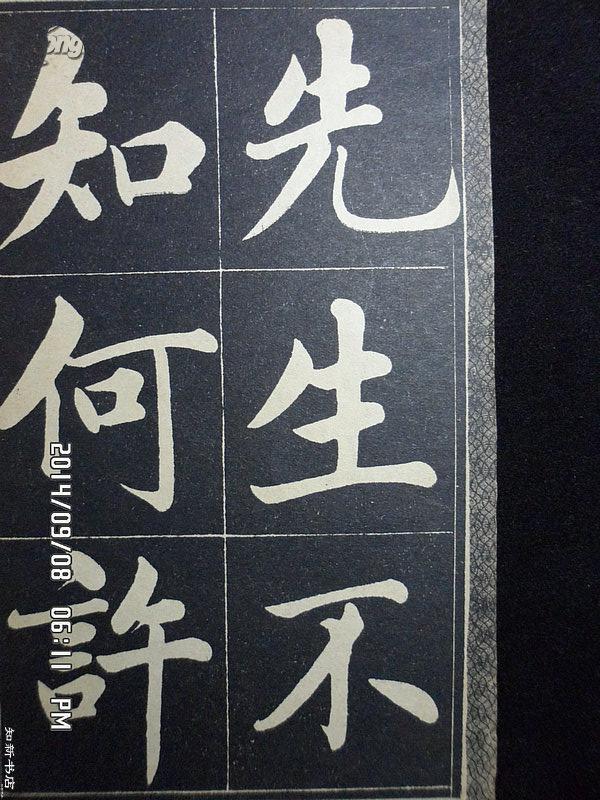 先生不
知何許
ong
2014/09/08 06:11 PM
知新书店